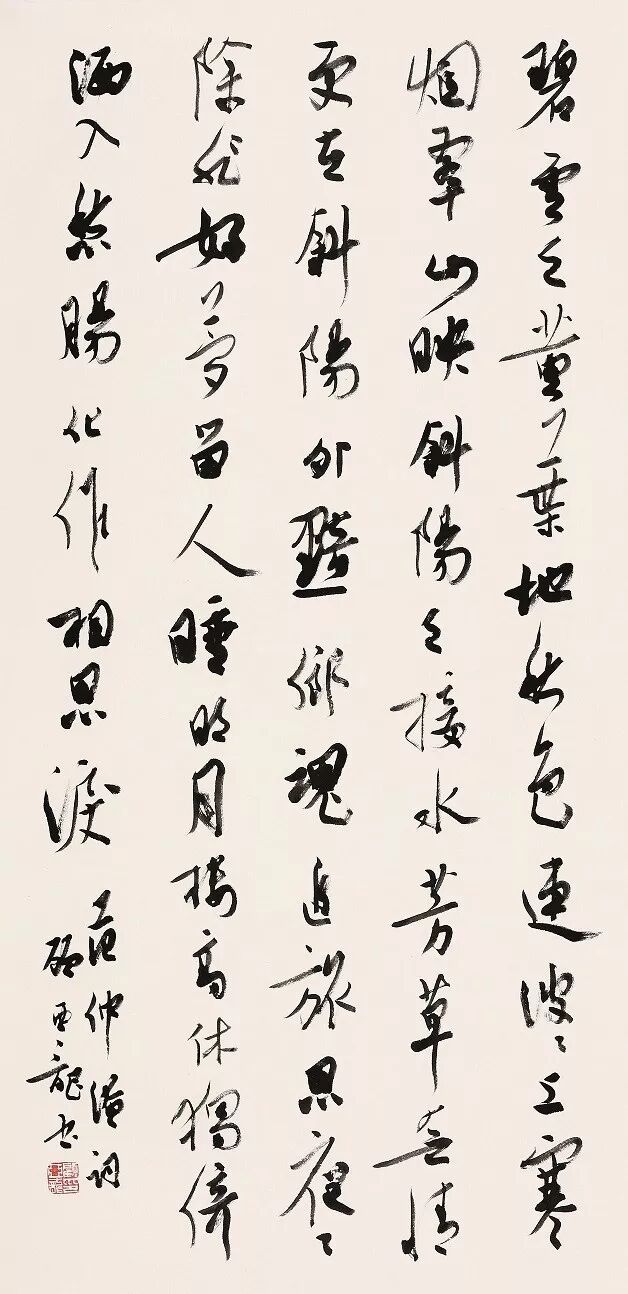 碧雲天黃葉地秋色連波〻上寒
烟翠山映斜陽天接水芳草無情
更在斜陽外黯鄉魂追旅思夜〻
除非好夢留人睡明月樓高休獨倚
酒入愁腸化作相思淚
范仲淹詞
顧亞龍書